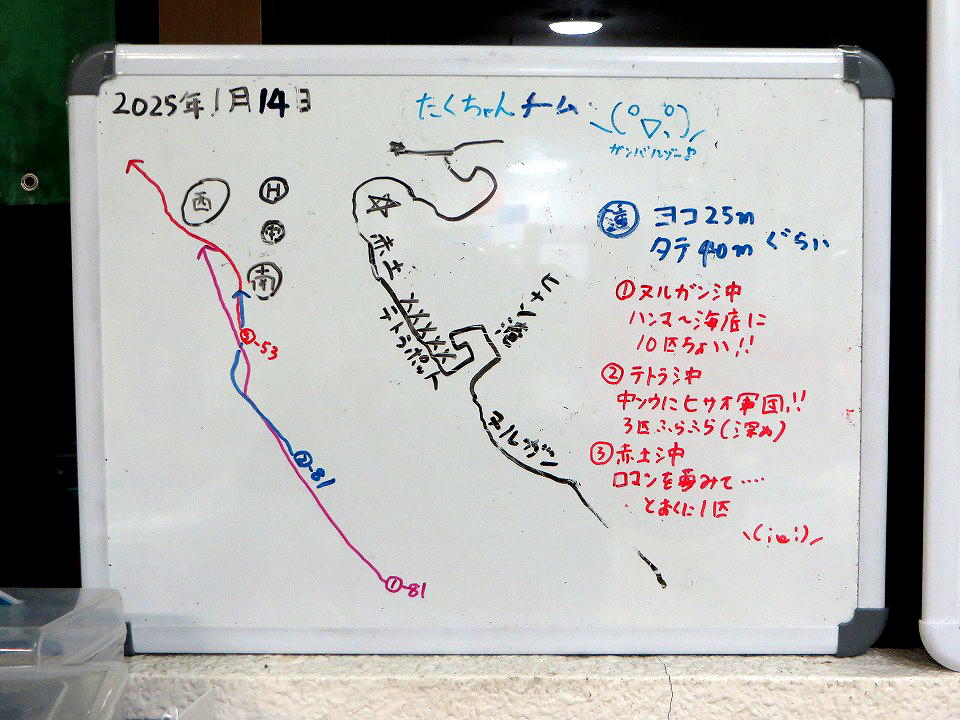 2025年1月14日
たくちゃんチーム
ガンバルゾー♪
西
H
中
南
赤土
テトラポット
ヒナイ
ヌルガン
③-53
②-81
①-81
ヨコ25m
タテ40mぐらい
①ヌルガン沖
ハンマ〜海底に
10匹ちょい!!
②テトラ沖
中ソウにヒサオ軍団!!
3匹ふらふら(深め)
③赤土沖
ロマンを夢みて‥‥
とおくに1匹